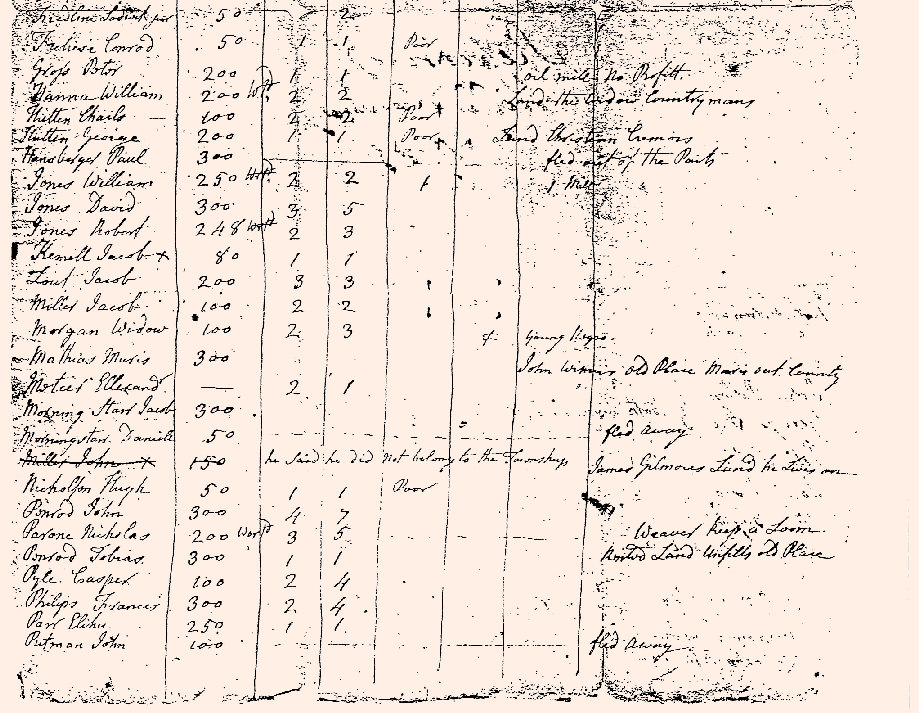 50 2
Conrod 50 1 1 Poor
Gross Petor 200 1 1 oil mile No Profitt
Hannа William 200 2 2 Land the widow Countrymans
Hutten Charls — 100 2 2 Poor
Hutten George 200 1 1 Poor Land Christian
Hansberger Paul 300 fled out of the Parts
Jones William 250 2 2 1 1 Mill
Jones David 300 3 5
Jones Robert 248 2 3
Jacob + 80 1 1
Jacob 200 3 3
Miller Jacob 100 2 2
Morgan Widow 100 2 3 young Negro
Mathias Maris 300 John old Place Maris out County
— 2 1
Morning Starr Jacob 300
Morningstarr Daniell 50 fled away
Miller John + 150 he said he did not belong to the Township James Gilmores Land he Lives on
Nicholson Hugh 50 1 1 Poor
Penrod John 300 4 7
Parone Nicholas 200 3 5 Weaver keep a Loom
Penrod Tobias 300 1 1 Land old Place
Pyle Casper 100 2 4
Philips Frances 300 2 4
Parr Elihu 250 1 1
Pitman John 100 fled away